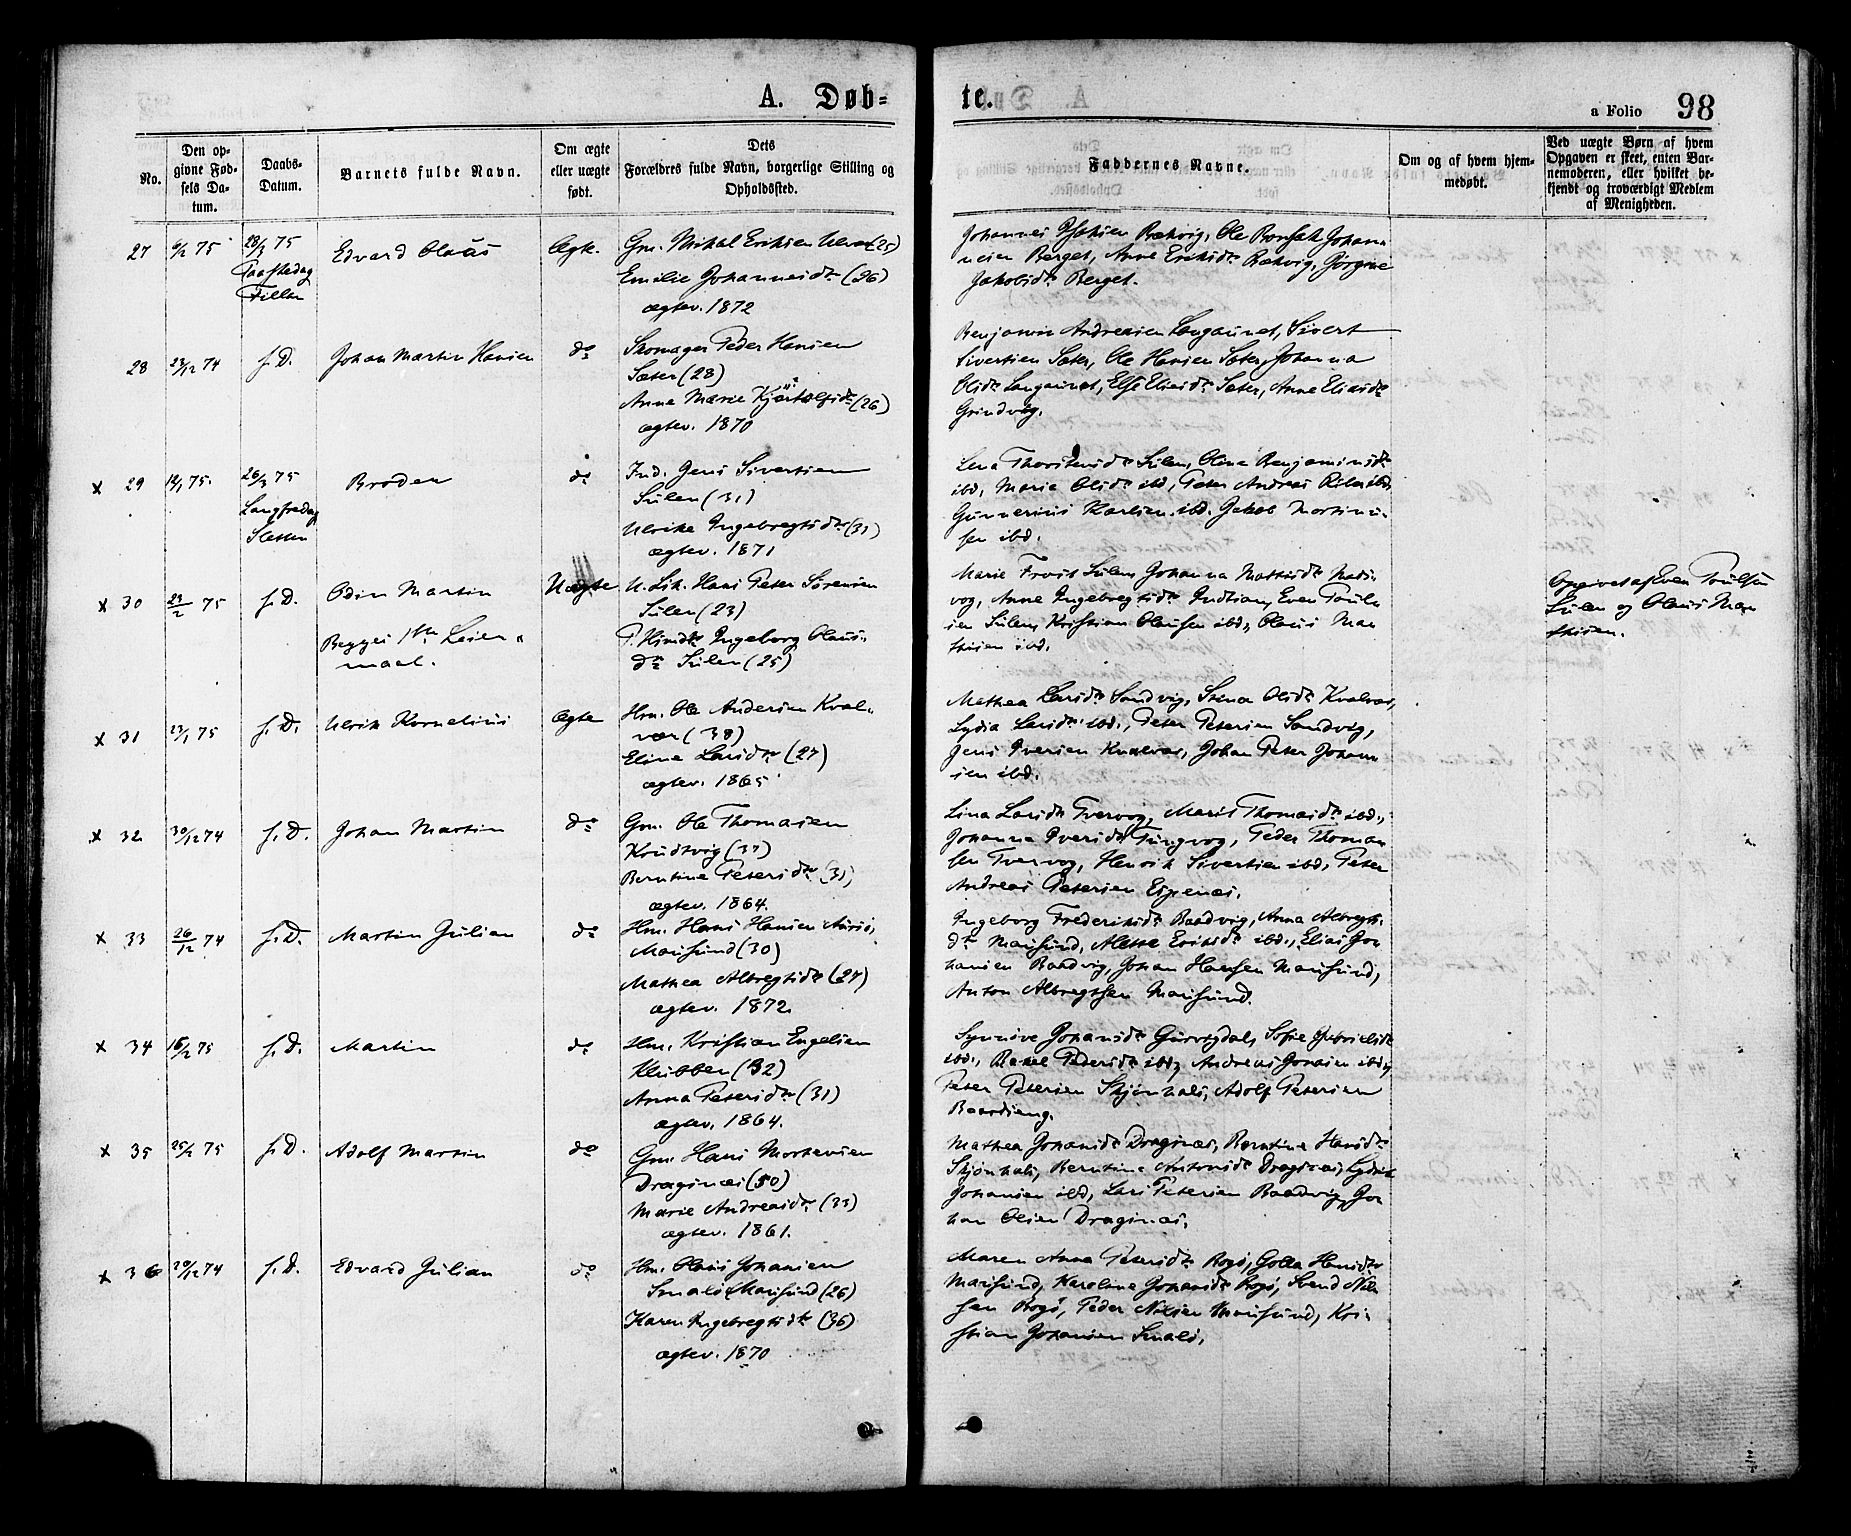 A. Døb-
te.
a Folio 98
No.
Den op-
givne Fød-
sels Da-
tum.
Daabs-
Datum.
Barnets fulde Navn.
Om ægte
eller uægte
født.
Dets
Forældres fulde Navn, borgerlige Stilling og
Opholdssted.
Faddernes Navne.
Om og af hvem hjem-
medøbt.
Ved uægte Børn af hvem
Opgaven er skeet, enten Bar-
nemoderen, eller hvilket be-
kjendt og troværdigt Medlem
af Menigheden.
27 6/2 75 28/3 75 Edvard Olaus Ægte. Gm. Mikal Eriksen Ulvø (25)
Paaskedag
Fillan
Emilie Johannesdtr (26)
ægtev. 1872
Johannes Rækvig, Ole Johan
nesen Berget, Anne Eriksdtr Rækvig, Jørgine
Jakobsdtr Berget.
28 23/12 74 s. D. Johan Martin Hansen do Skomager Peder Hansen
Sæter (28)
Anna Marie (26)
ægtev. 1870
Benjamin Andreasen Langaunet, Sivert
Sivertsen Sæter, Ole Hansen Sæter, Johanna
Olsdtr Langaunet, Else Eliasdtr Sæter, Anne Eliasdtr
Grindvig.
x 29 14/1 75. 26/3 75 Broder do Ind. Jens Sivertsen
Langfredag
Sletten
Sulen (31)
Ulrike Ingebregtsdtr (31)
ægtev. 1871
Lena Thorstensdtr Sulen, Oline Benjaminsdtr
ibd, Marie Olsdtr ibd, Peter Andreas ibd,
Gunnerius Karlsen ibd. Jakob Martinu-
sen ibd.
x 30 23/2 75 s. D. Odin Martin Uægte U. Sik. Hans Peter Sørensen
Sulen (23)
Begges 1ste Leier-
maal.
P. Kvindk. Ingeborg Olaus-
dtr Sulen (25)
Marie Frost Sulen, Johanna Mathisdtr
vog, Anne Ingebregtsdtr Even Pauls-
sen Sulen, Kristian Olausen ibd., Olaus Ma-
thisen ibd.
Opgivet af Even Paulsen
Sulen og Olaus Ma-
thisen.
x 31 23/1 75 s. D. Ulrik Kornelius Ægte Hm. Ole Andersen Kval-
vær (38)
Eline Larsdtr (27)
ægtev. 1865
Mathea Larsdtr Sandvig, Stina Olsdtr Kvalvær,
Lydia Larsdtr ibd., Peter Petersen Sandvig,
Jens Iversen Kvalvær, Johan Peter Johann-
sen ibd.
x 32 30/12 74 s. D. Johan Martin do Gm. Ole Thomasen
Knudtvig (37)
Berntine Petersdtr (31)
ægtev. 1864.
Lina Larsdtr Tvervog, Marit Thomasdtr ibd.,
Johanna Iversdtr Tungvog, Peder Thoma-
sen Tvervog, Henrik Sivertsen ibd, Peter
Andreas Petersen Espenæs.
x 33 26/12 74 s. D. Martin Julian do Hm. Hans Hansen
Marisund (30)
Mathea Albregtsdtr (27)
ægtev. 1872.
Ingeborg Frederiksdtr Baadvig, Anna Albregts-
dtr Marisund, Alette Eriksdtr ibd., Elias Jo-
hansen Baadvig, Johan Hansen Marisund,
Anton Albregtsen Marisund.
x 34 16/2 75 s. D. Martin do Hm. Kristian Engelsen
Klubben (32)
Anna Petersdtr (31)
ægtev. 1864.
Synnøve Johansdtr Sofie Gabrielsdtr
ibd., Rakel Pedersdtr ibd, Andreas Jonsen ibd,
Peter Petersen Skjønhals, Adolf Petersen
Baardseng.
x 35 25/2 75 s. D. Adolf Martin do Gm. Hans Mortensen
Draginæs (50)
Marie Andreasdtr (33)
ægtev. 1861.
Mathea Johansdtr Draginæs, Berntine Hansdtr
Skjønhals, Berntine Antonsdtr Draginæs,
Johansen ibd, Lars Petersen Baadvig, Jo-
han Olsen Draginæs.
x 36 20/12 74 s. D. Edvard Julian do Hm. Olaus Johansen
Smalø Marisund (26)
Karen Ingebregtsdtr (36)
ægtev. 1870
Maren Anna Petersdtr Bogø, Golla Hansdtr
Marisund, Karoline Johansdtr Bogø, Svend Nil-
sen Bogø, Peder Nilsen Marisund, Kri-
stian Johansen Smalø.